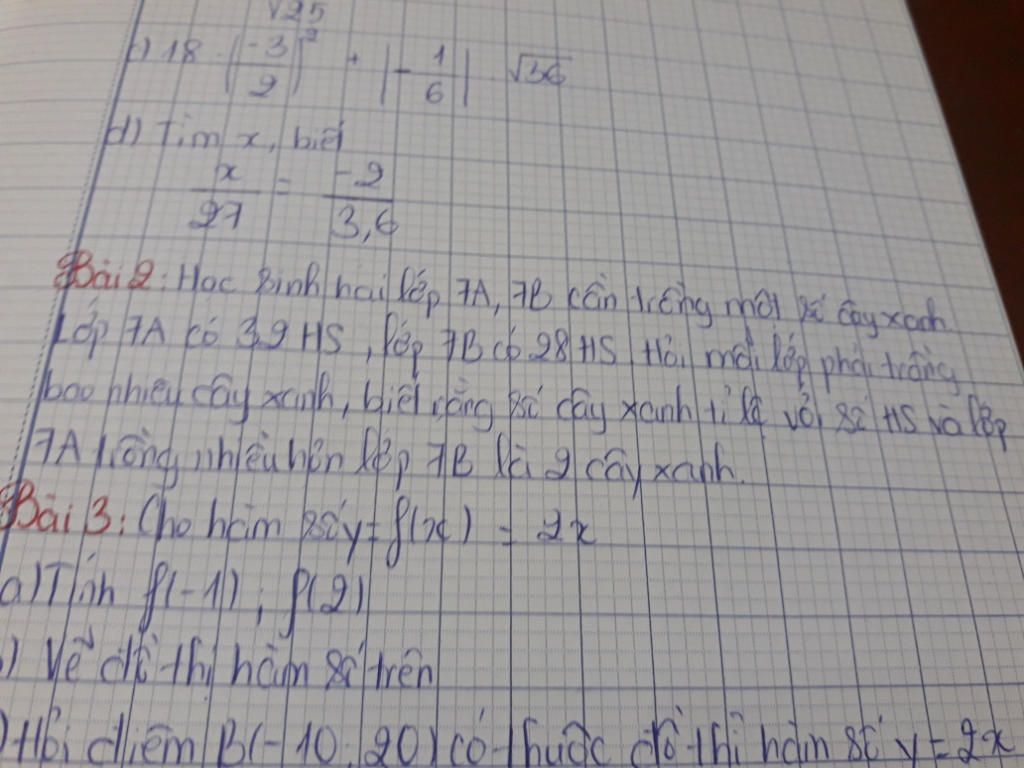 √25
c) 18 . (-3/2)² + |-1/6| √36
d) Tìm x, biết
x/27 = -2/3,6
Bài 2: Học sinh hai lớp 7A, 7B cần trồng một số cây xanh
Lớp 7A có 32 HS, lớp 7B có 28 HS Hỏi mỗi lớp phải trồng
bao nhiêu cây xanh, biết rằng số cây xanh tỉ lệ với số HS và lớp
7A trồng nhiều hơn lớp 7B là 2 cây xanh.
Bài 3: Cho hàm số y = f(x) = 2x
a) Tính f(-1), f(2)
b) Vẽ đồ thị hàm số trên
) Hỏi điểm B(-10; 20) có thuộc đồ thị hàm số y = 2x